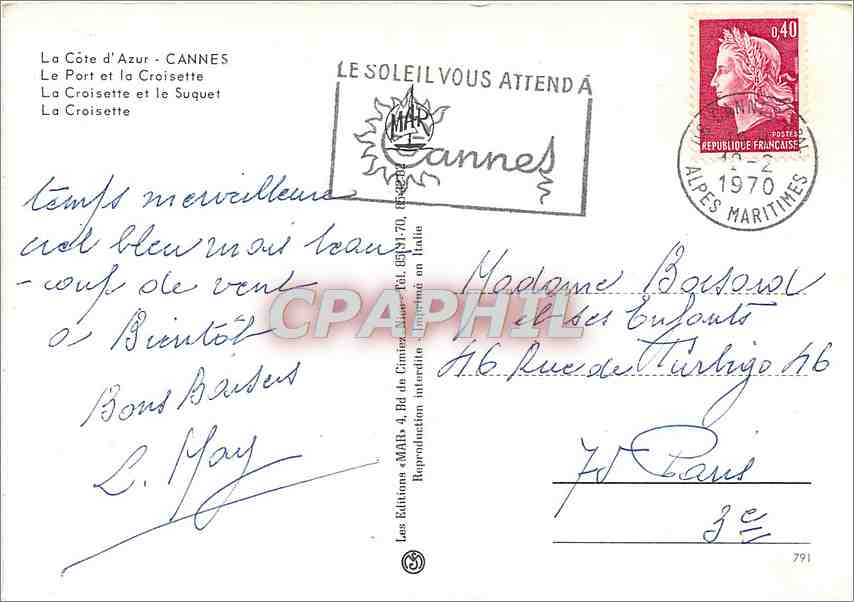 La Côte d'Azur - CANNES
Le Port et la Croisette
La Croisette et le Suquet
La Croisette
LE SOLEIL VOUS ATTEND À
MAR
Cannes
0,40
POSTES
REPUBLIQUE FRANÇAISE
CANNES
12-2
1970
ALPES MARITIMES
temps merveilleux
ciel bleu mais beau
-coup de vent
a Bientôt
Bons Baisers
L. May
Les Editions «MAR» 4, Bd de Cimiez, Nice - Tél. 85-91-70,
Reproduction interdite - Imprimé en Italie
Madame Boisard
et ses Enfants
46 Rue de Turbigo 46
75 Paris
3e
791
CPAPHIL